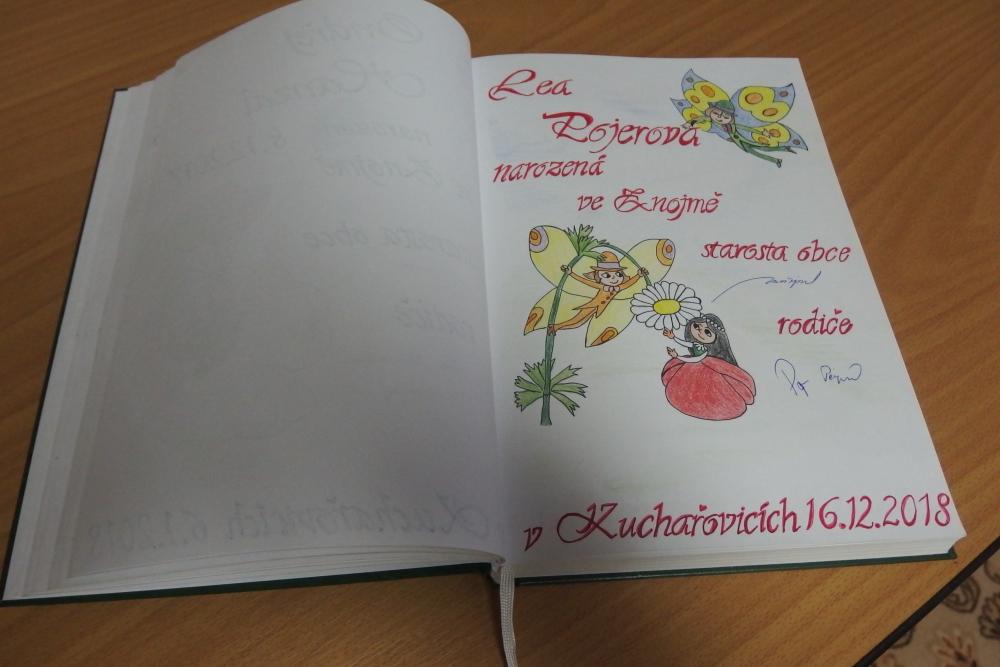 Lea
Pojerová
narozená
ve Znojmě
starosta obce
rodiče
v Kuchařovicích 16.12.2018